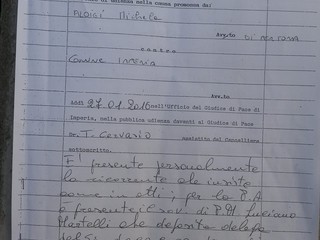 di udienza nella causa promossa da:
Avv.to
contro
Comune Imperia
Avv.to
Addì 27.01.2016 nell'Ufficio del Giudice di Pace di
Imperia, nella pubblica udienza davanti al Giudice di Pace
Dr. T. assistito dal Cancelliere
sottoscritto.
E' presente personalmente
la ricorrente che insiste
come in atti; per la P.A
è presente il sov. di P.M. Luciano
Martelli che deposita delega